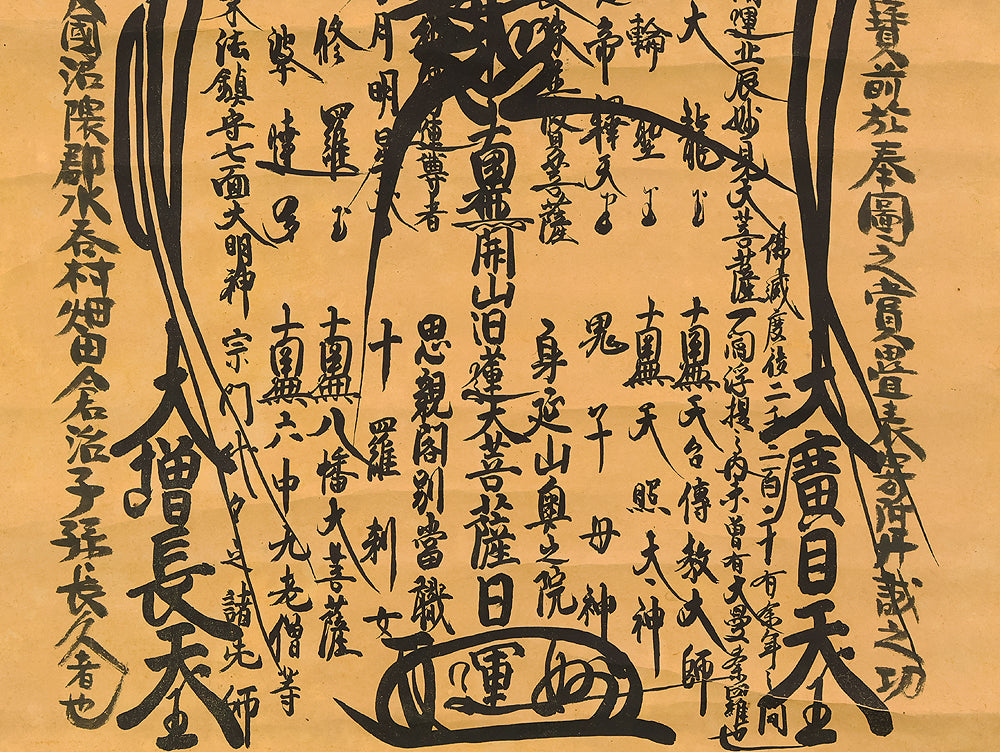 前於奉圖之賞畳表寄附丹誠之功
大廣目天王
佛滅度後二千二百二十有余年之間
一閻浮提之内未曽有大曼荼羅也
運北辰妙見大菩薩
大龍王
南無天台傳教大師
輪聖王
南無天照大神
帝釋天王
鬼子母神
普賢菩薩
身延山奥之院
南無開山日蓮大菩薩日
妙運
蓮尊者
思親閣別當職
月明星天
十羅刹女
修羅王
南無八幡大菩薩
婆達多
南無六中九老僧等
法鎮守七面大明神
宗門代々之諸先師
大増長天王
國沼隈郡水呑村畑田令治子孫長久者也